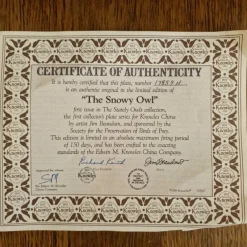 CERTIFICATE OF AUTHENTICITY
It is hereby certified that this plate, number
is an authentic original in the limited edition of
"The Snowy Owl"
first issue in The Stately Owls collection,
the first collector's plate series for Knowles China
by artist Jim Beaudoin, and sponsored by the
Society for the Preservation of Birds of Prey.
This edition is limited to an absolute maximum firing period
of 150 days, and has been crafted to the exacting
standards of the Edwin M. Knowles China Company.
Knowles